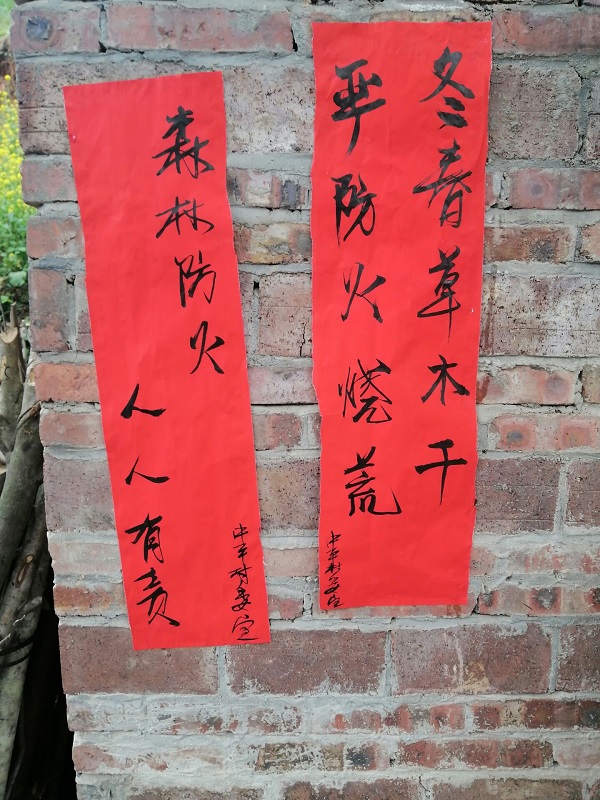 冬春草木干
严防火烧荒
中平村委宣
森林防火
人人有责
中平村委宣